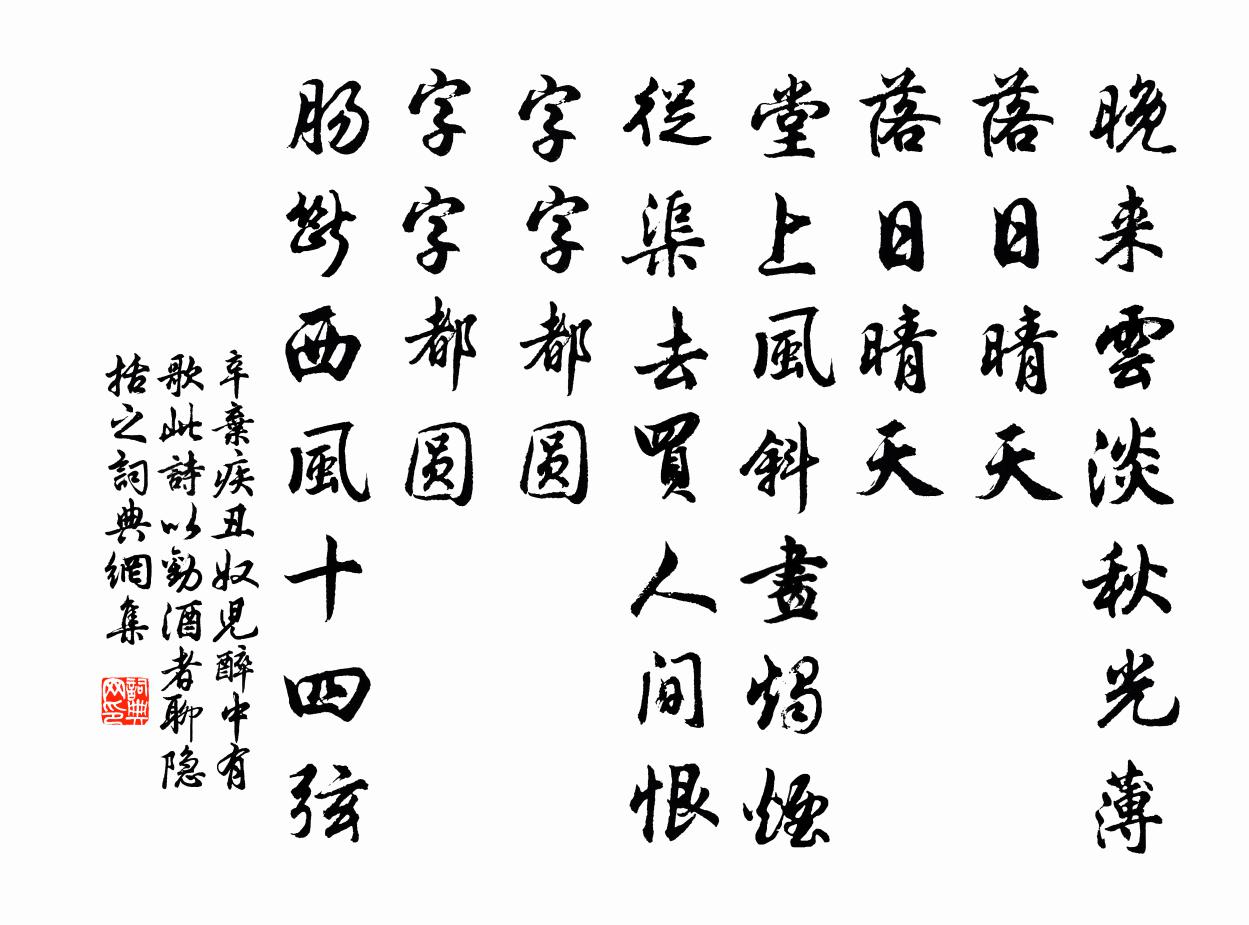 晚来雲淡秋光薄
落日晴天
落日晴天
堂上風斜畫燭煙
從渠去買人间恨
字字都圆
字字都圆
肠斷西風十四弦
辛棄疾丑奴児醉中有
歌此詩以勸酒者聊隐
括之詞典網集
詞典网印